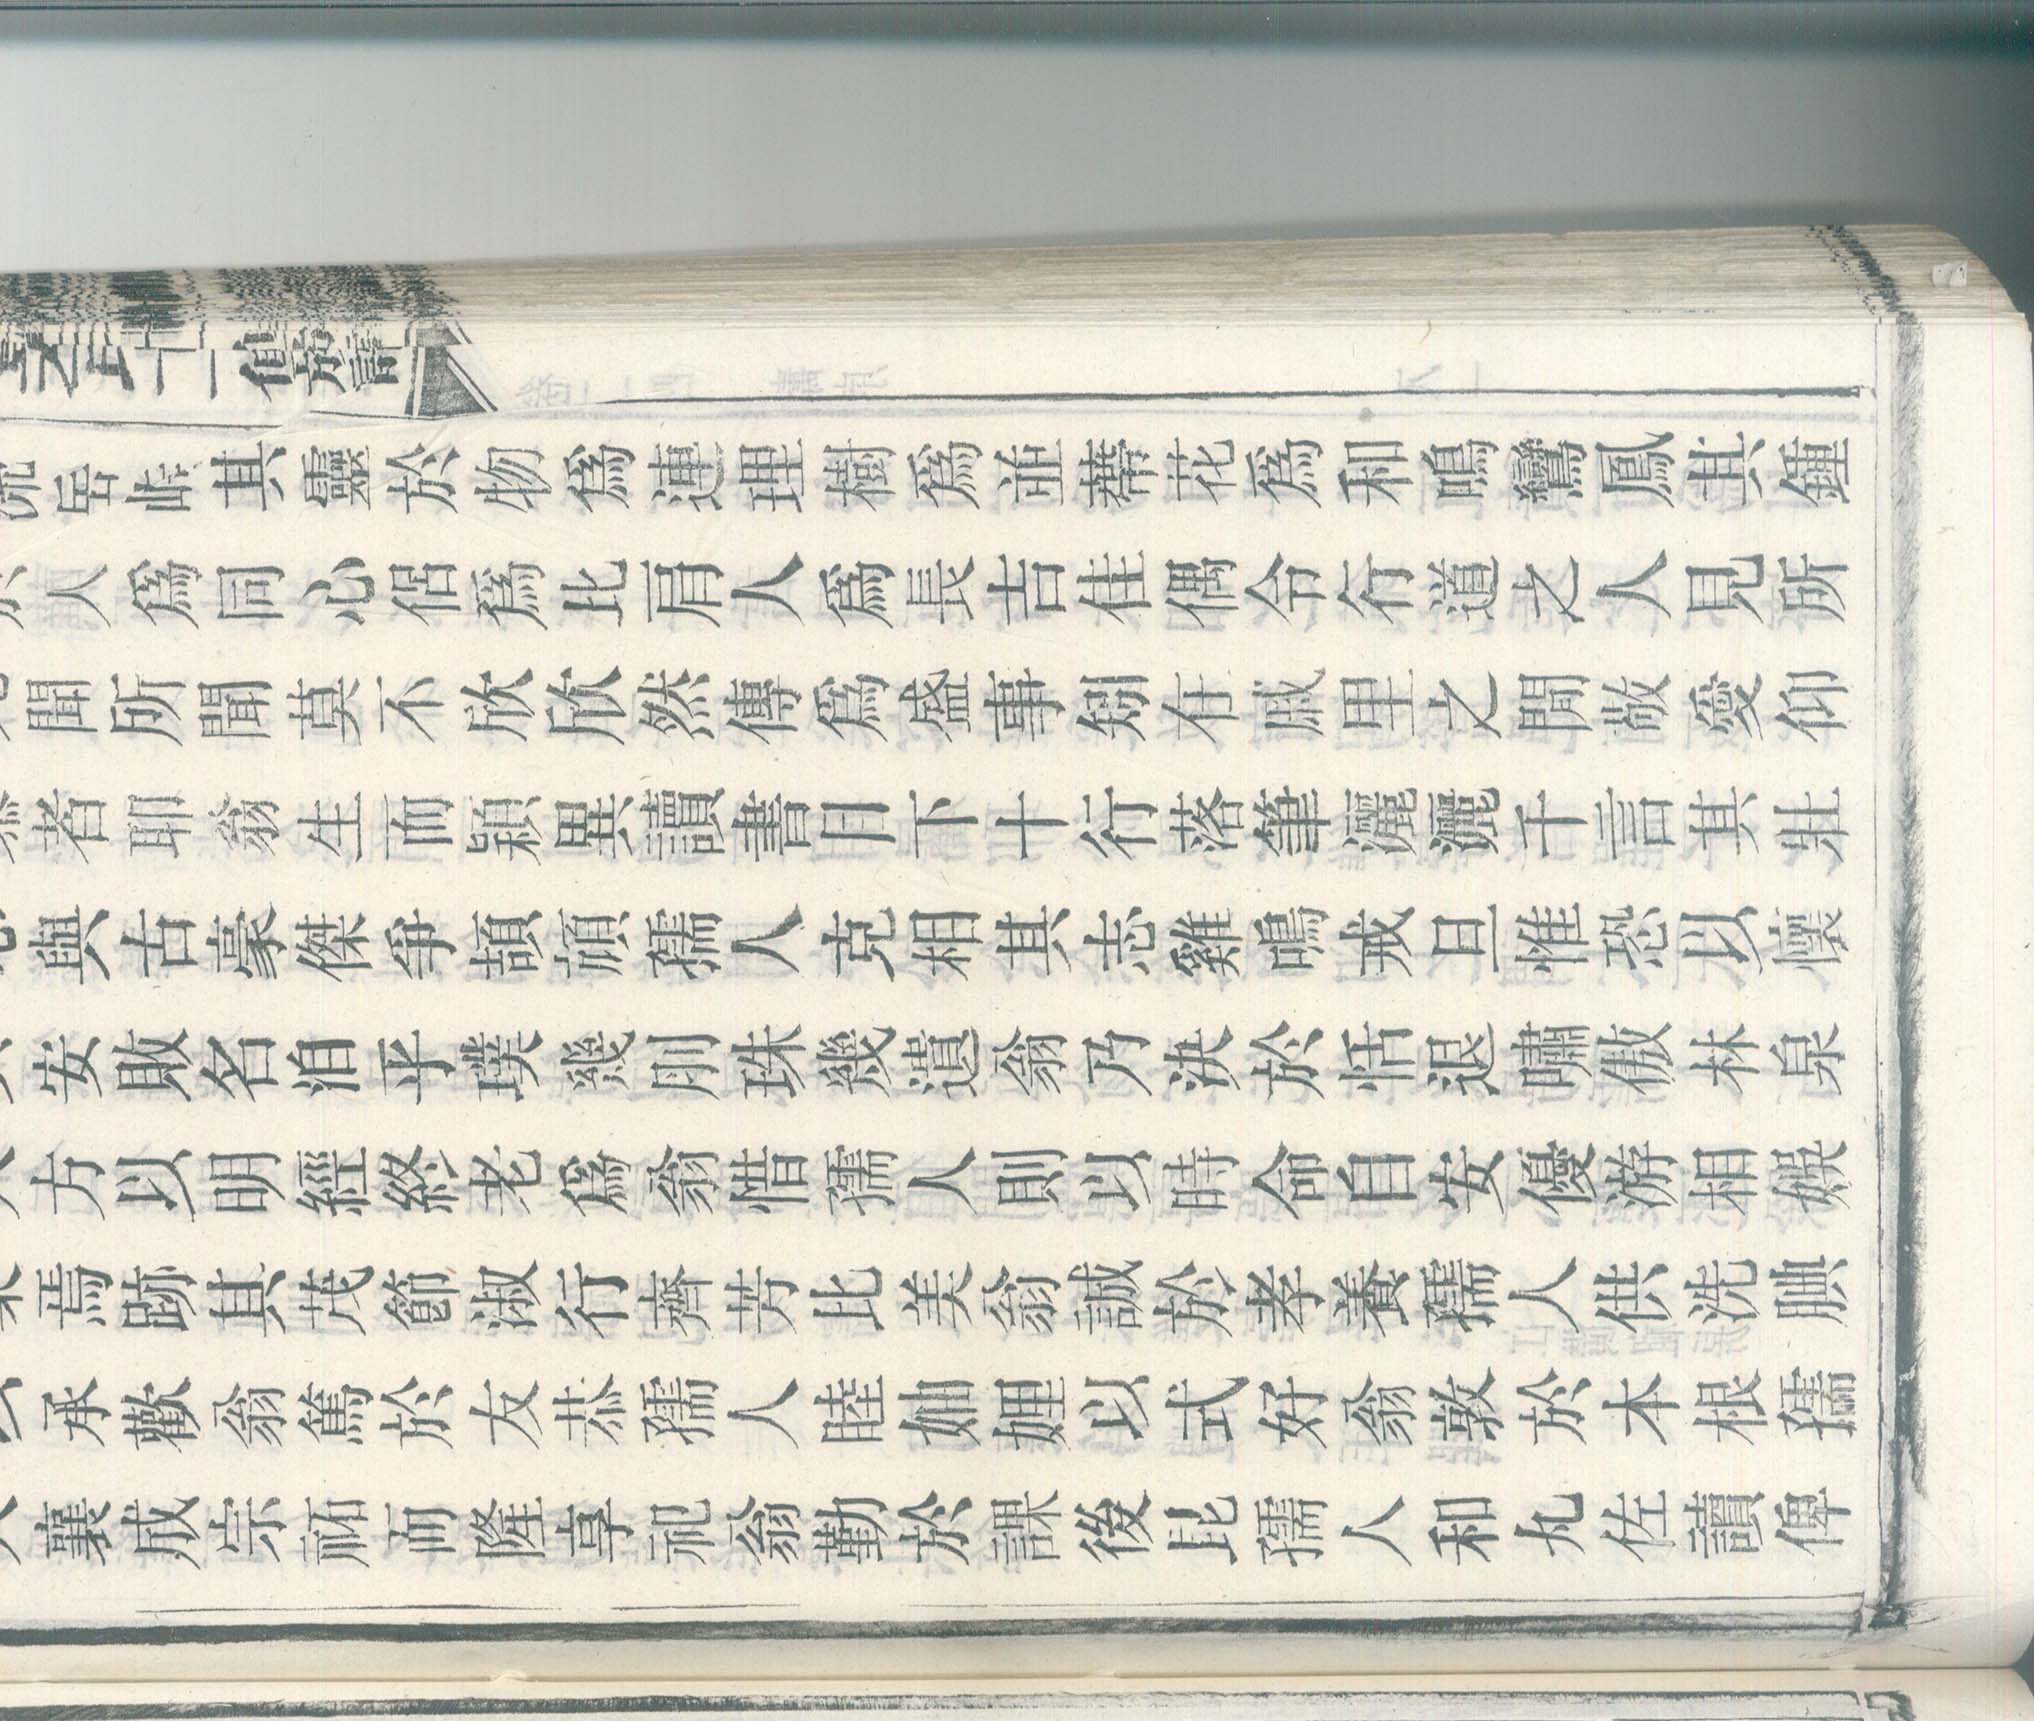 流岳峙其靈於物爲連理樹爲並蒂花爲和鳴鸞鳳其鍾
於人爲同心侶爲比肩人爲長吉佳偶令行道之人見所
聞所聞莫不欣欣然傳爲盛事矧在戚里之間敬愛仰
慕者耶翁生而穎異讀書目下十行落筆灑灑千言其壯
心與古豪傑爭頡頏孺人克相其志雞鳴戒旦惟恐以懷
安敗名洎乎璞幾刖珠幾遺翁乃決於恬退嘯傲林泉
人方以明經終老爲翁惜孺人則以時命自安優游相娛
樂焉跡其茂節淑行齊芳比美翁誠於孝養孺人供洗腆
以承歡翁篤於友恭孺人睦妯娌以式好翁敦於本根孺
人襄成宗祏而隆享祀翁勤於課後昆孺人和丸佐讀俾